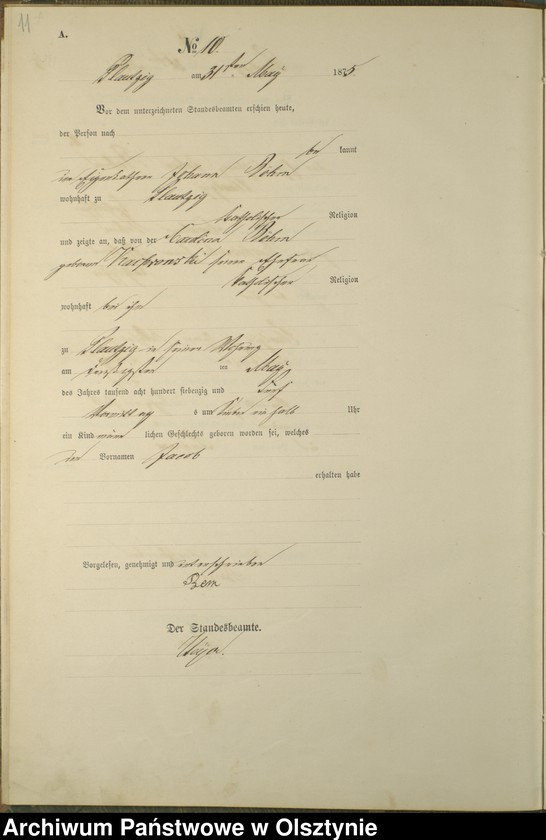 11
A.
№ 10
Plautzig am 31ten May 1875.
Vor dem unterzeichneten Standesbeamten erschien heute,
der Person nach
be kannt
der Eigenkäthner Johann Böhm
wohnhaft zu Plautzig
katholischer Religion
und zeigte an, daß von der Carolina Böhm
geborene seine Ehefrau
katholischer Religion
wohnhaft bei ihm
zu Plautzig in seiner Wohnung
am ten May
des Jahres tausend acht hundert siebenzig und fünf
Vormittags um sieben ein halb Uhr
ein Kind männ lichen Geschlechts geboren worden sei, welches
den Vornamen Jacob
erhalten habe
Vorgelesen, genehmigt und unterschrieben
Bem
Der Standesbeamte.
Archiwum Państwowe w Olsztynie